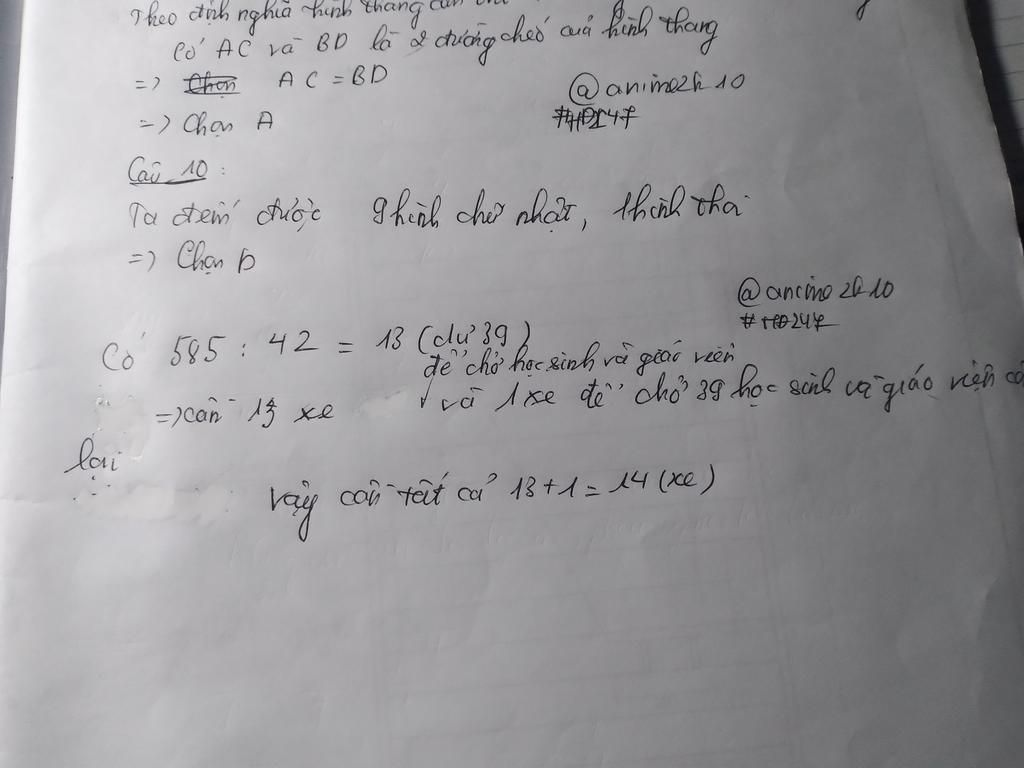 Theo định nghĩa hình thang cân
Có AC và BD là 2 đường chéo của hình thang
=> Chọn AC = BD
@anino2k10
#HD247
=> Chọn A
Câu 10:
Ta đếm được 9 hình chữ nhật, 1 hình thoi
=> Chọn D
@ancino2k10
#HD247
Có 585 : 42 = 13 (dư 39)
=> cần 13 xe để chở học sinh và giáo viên
và 1 xe để chở 39 học sinh và giáo viên
lại
Vậy cần tất cả 13+1=14 (xe)